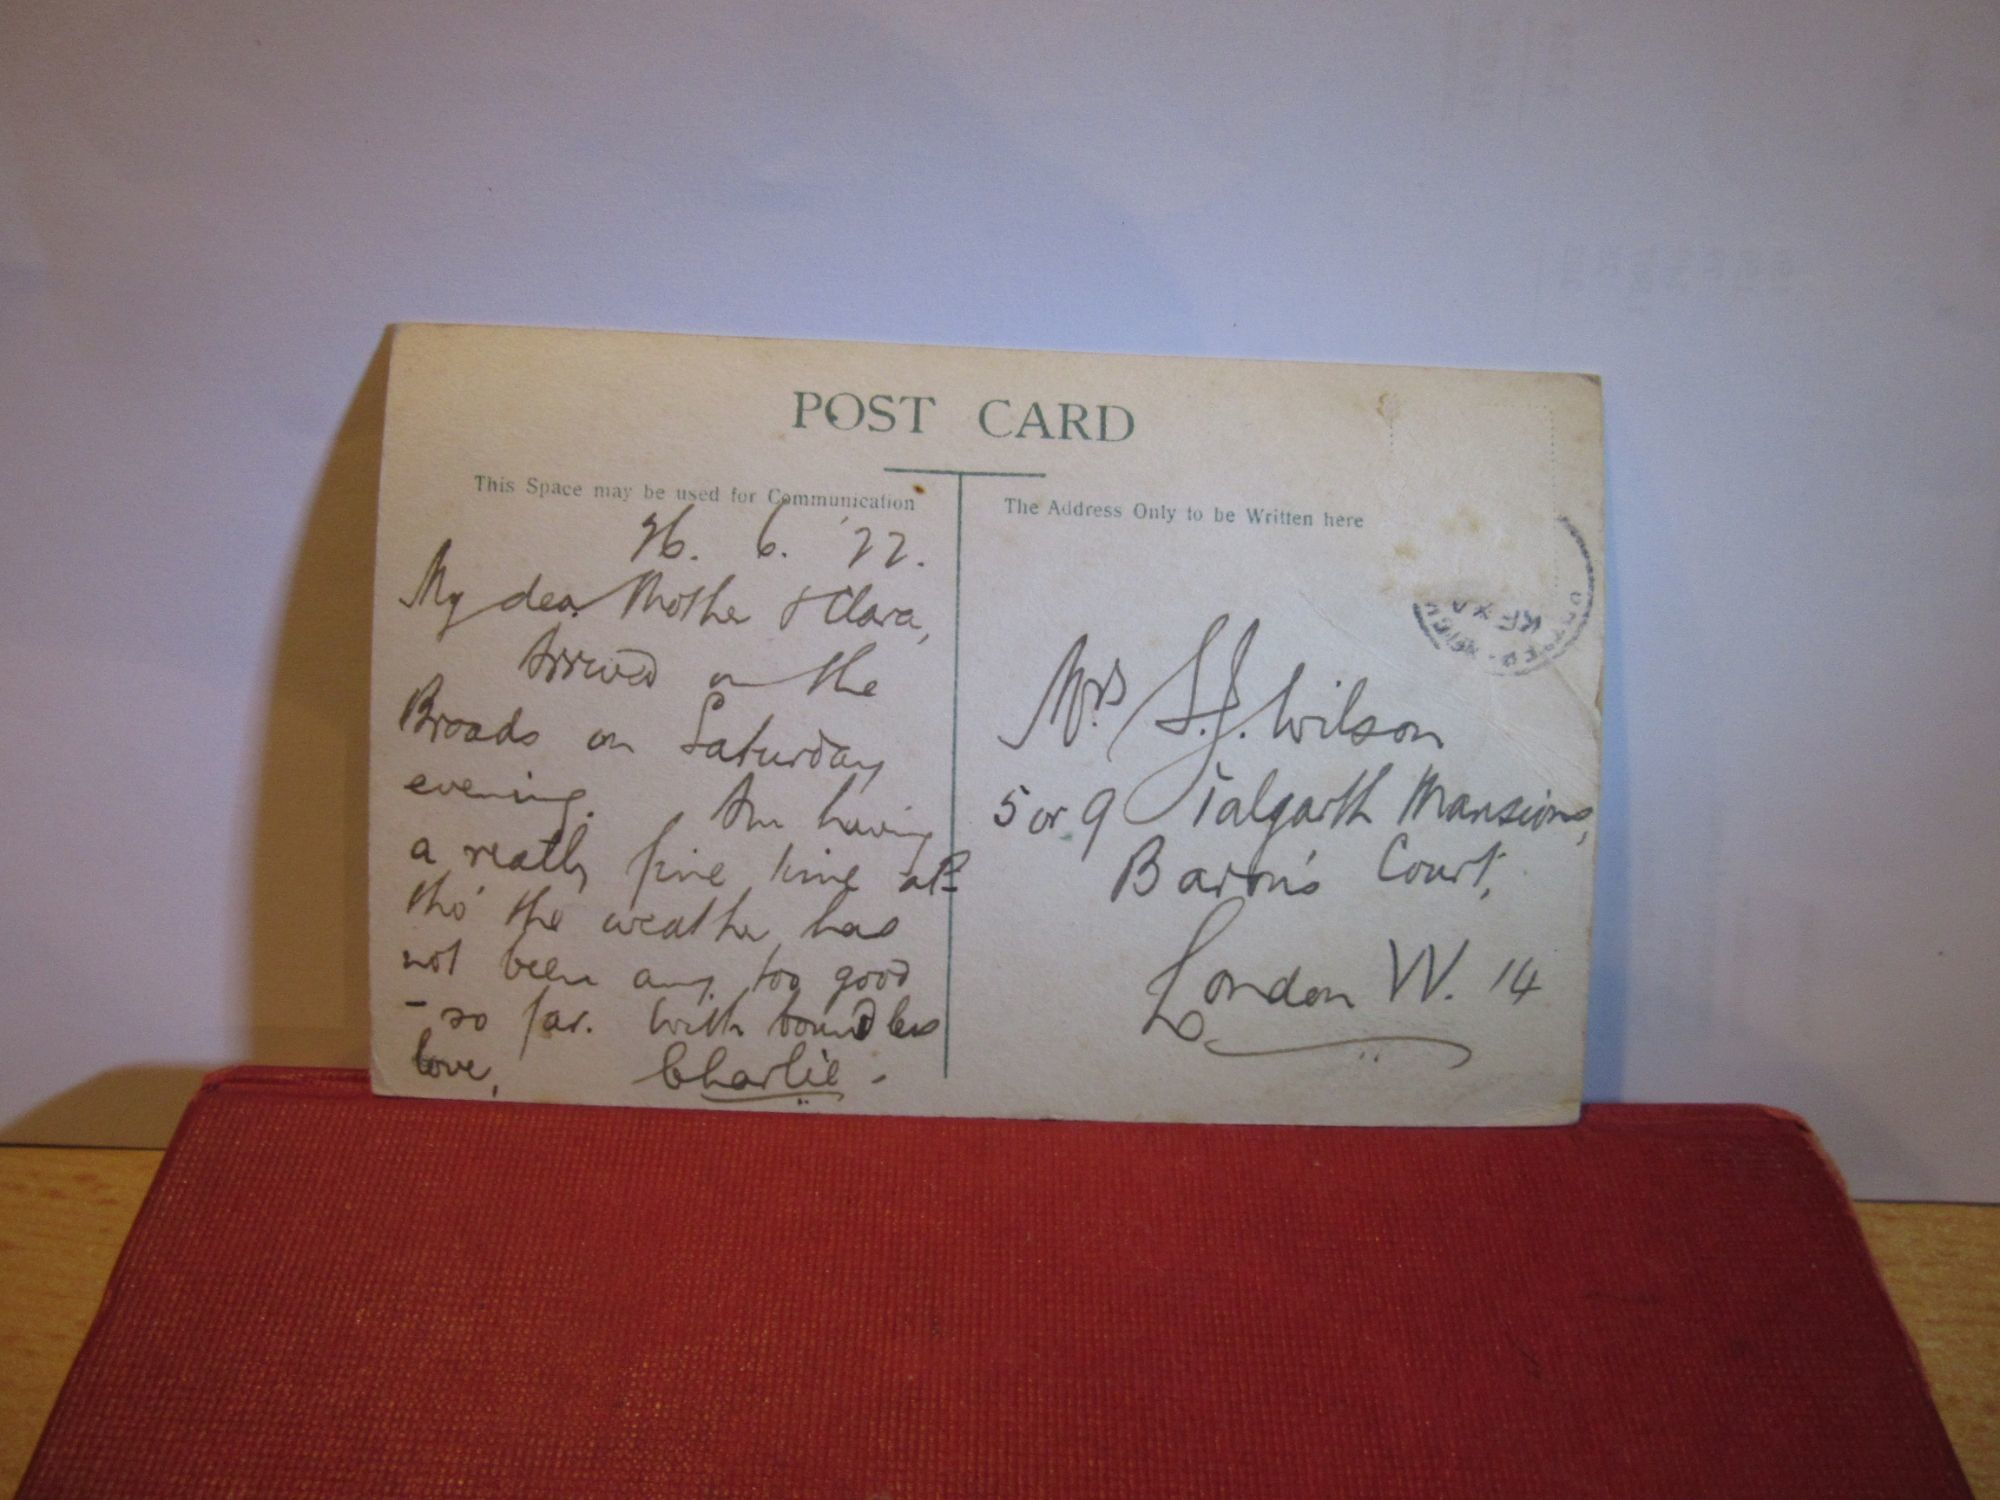 POST CARD
This Space may be used for Communication
26. 6. '22.
My dear Mother & Clara,
Arrived on the
Broads on Saturday
evening. Am having
a really fine time al-
tho' the weather has
not been any too good
- so far. With boundless
love, Charlie -
The Address Only to be Written here
Mrs S.J. Wilson
5 or 9 Talgarth Mansions,
Baron's Court,
London W. 14